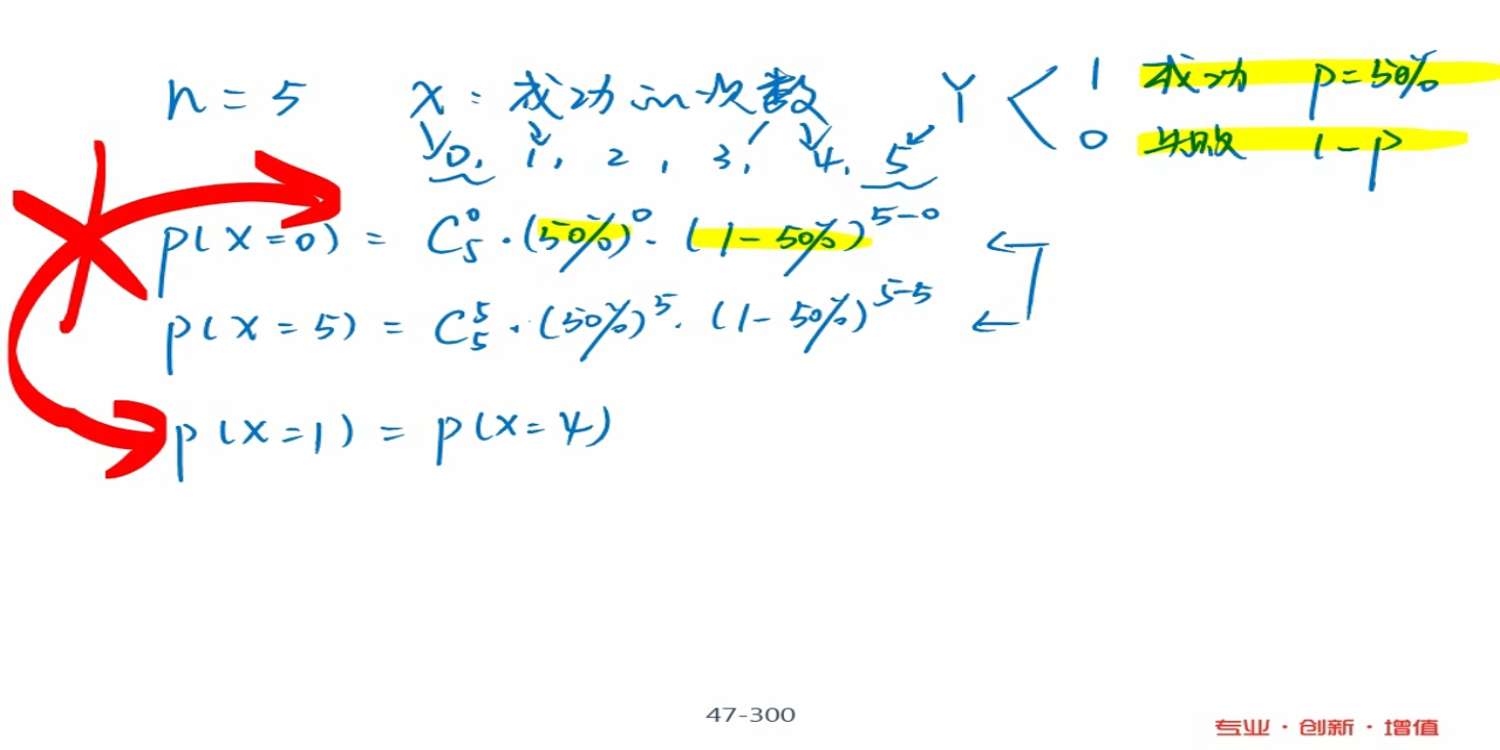 n = 5 X: 成功的次数 Y < 1 成功 p=50%
0, 1, 2, 3, 4, 5 0 失败 1-p
p(X=0) = C₅⁰·(50%)⁰·(1-50%)⁵⁻⁰
p(X=5) = C₅⁵·(50%)⁵·(1-50%)⁵⁻⁵
p(X=1) = p(X=4)
47-300
专业·创新·增值